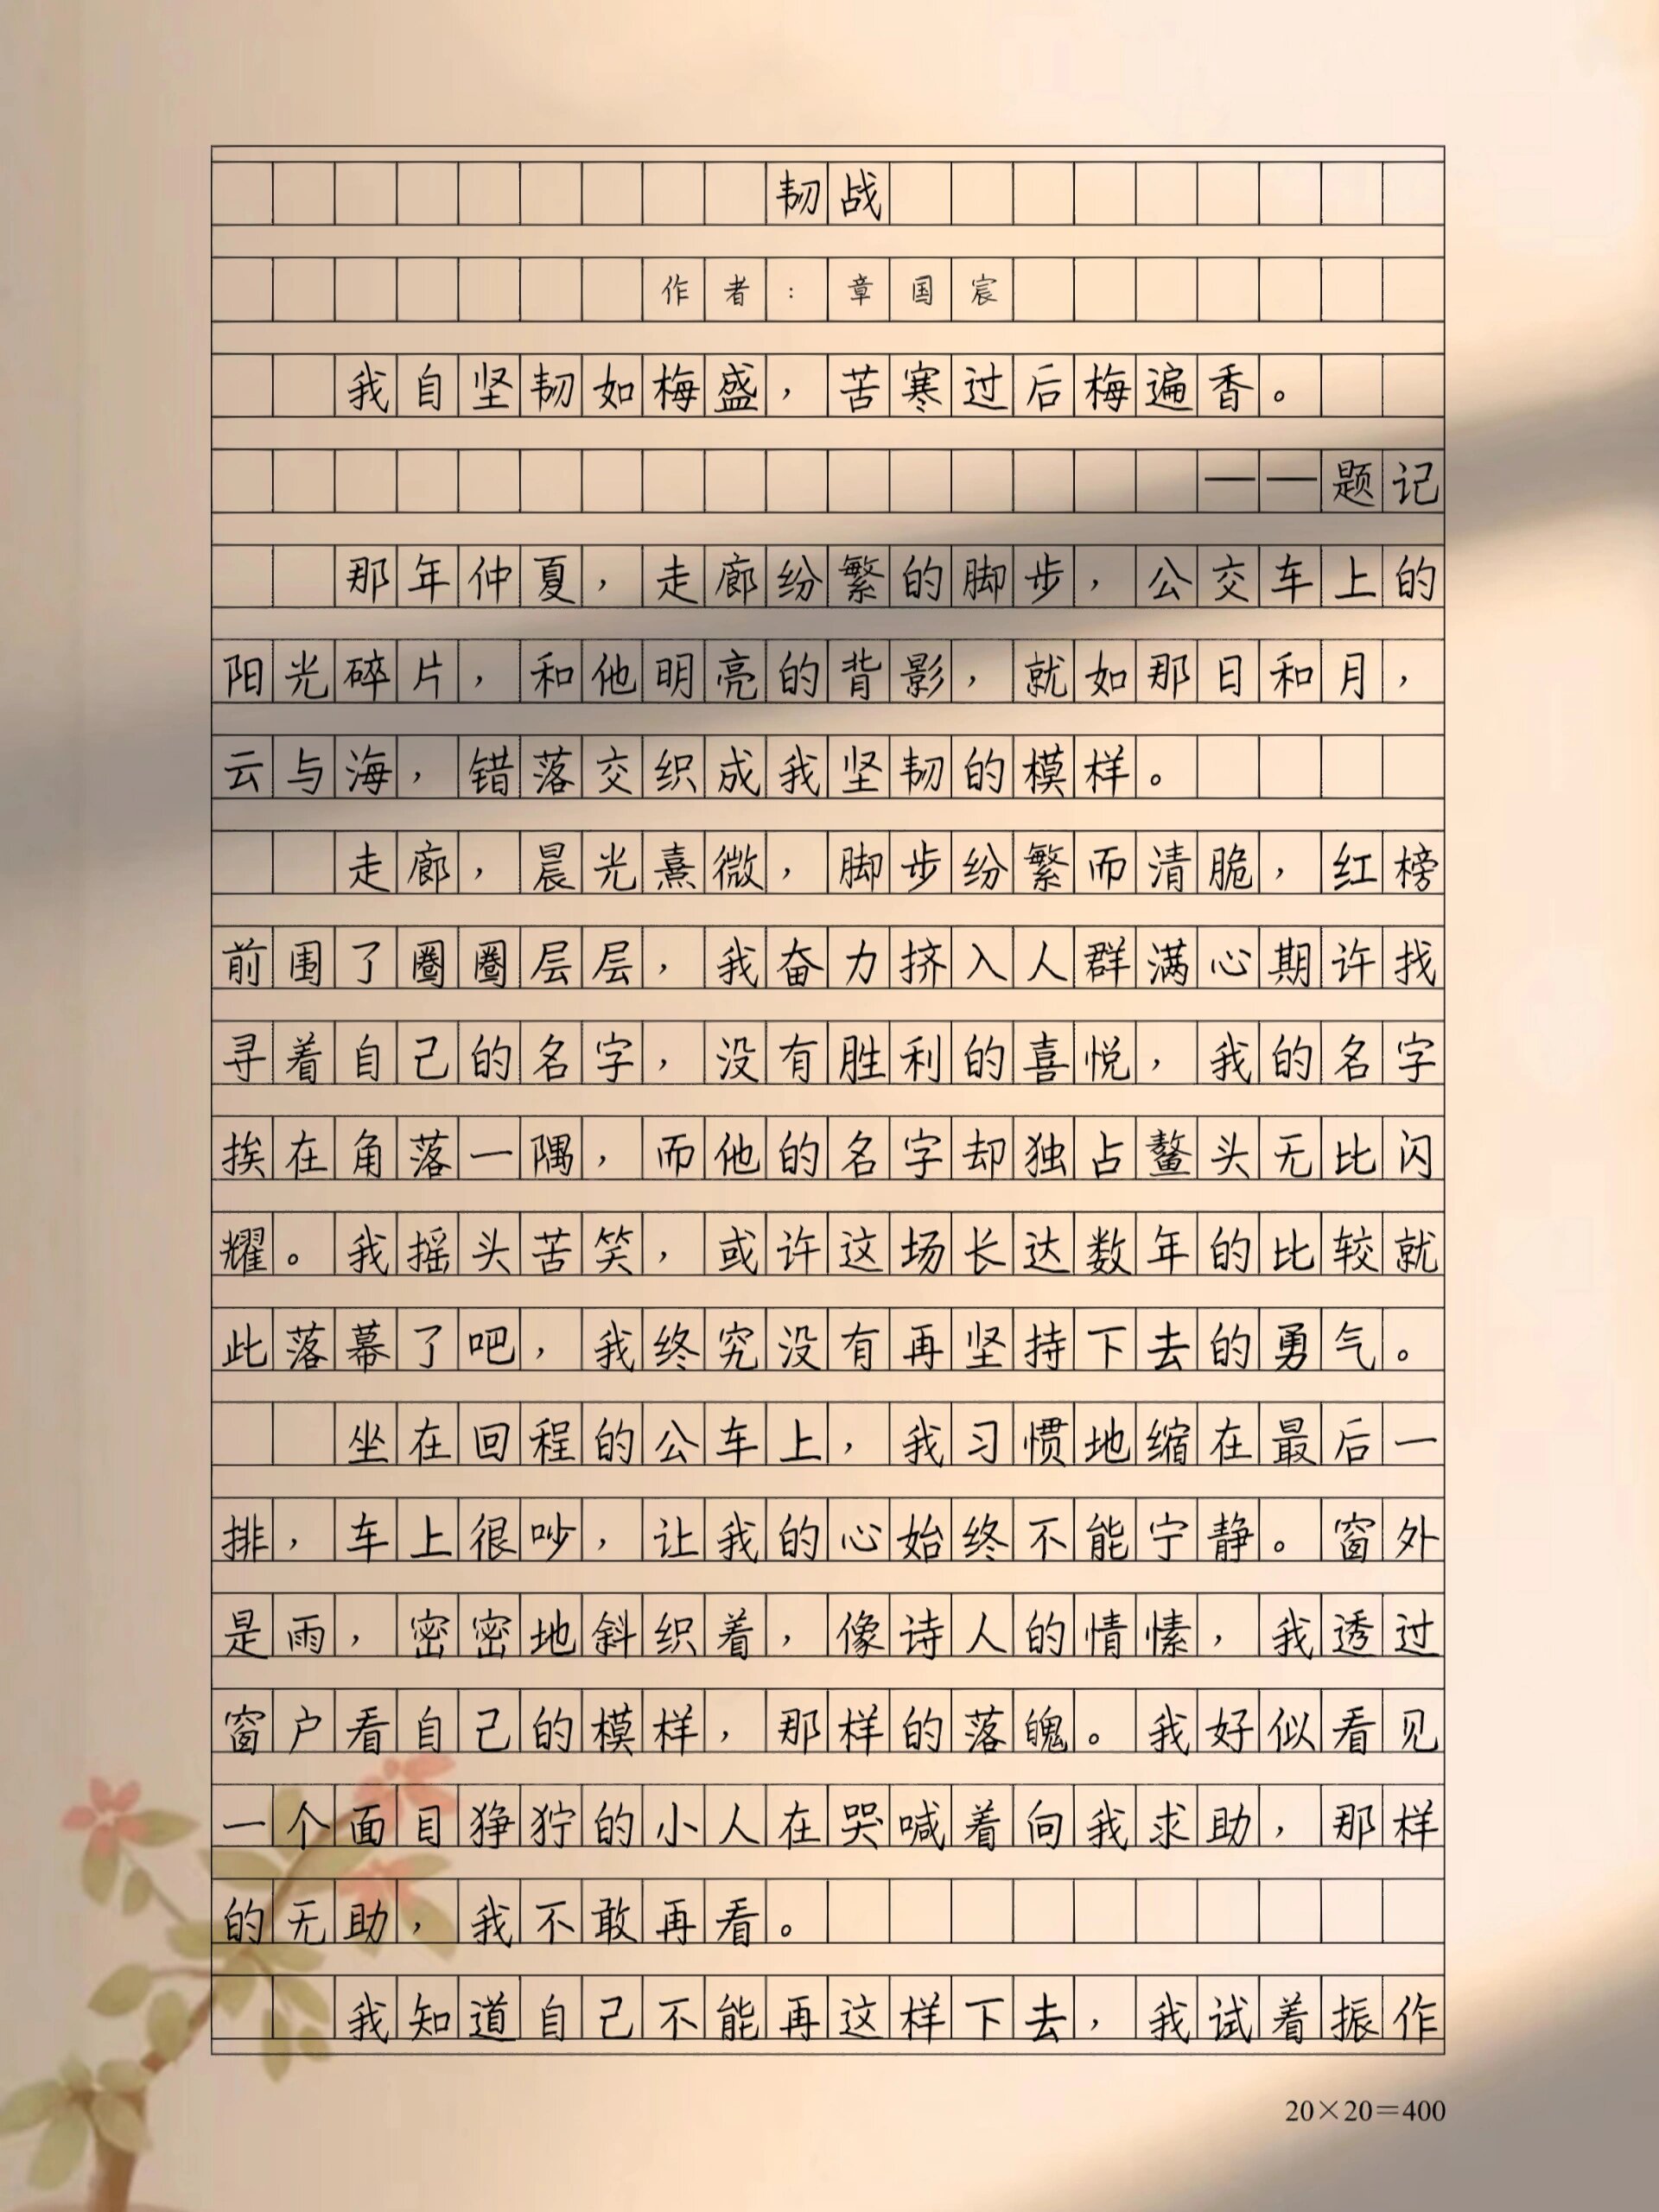 韧战
作者:章国宸
我自坚韧如梅盛，苦寒过后梅遍香。
——题记
那年仲夏，走廊纷繁的脚步，公交车上的
阳光碎片，和他明亮的背影，就如那日和月，
云与海，错落交织成我坚韧的模样。
走廊，晨光熹微，脚步纷繁而清脆，红榜
前围了圈圈层层，我奋力挤入人群满心期许找
寻着自己的名字，没有胜利的喜悦，我的名字
挨在角落一隅，而他的名字却独占鳌头无比闪
耀。我摇头苦笑，或许这场长达数年的比较就
此落幕了吧，我终究没有再坚持下去的勇气。
坐在回程的公车上，我习惯地缩在最后一
排，车上很吵，让我的心始终不能宁静。窗外
是雨，密密地斜织着，像诗人的情愫，我透过
窗户看自己的模样，那样的落魄。我好似看见
一个面目狰狞的小人在哭喊着向我求助，那样
的无助，我不敢再看。
我知道自己不能再这样下去，我试着振作
20×20=400